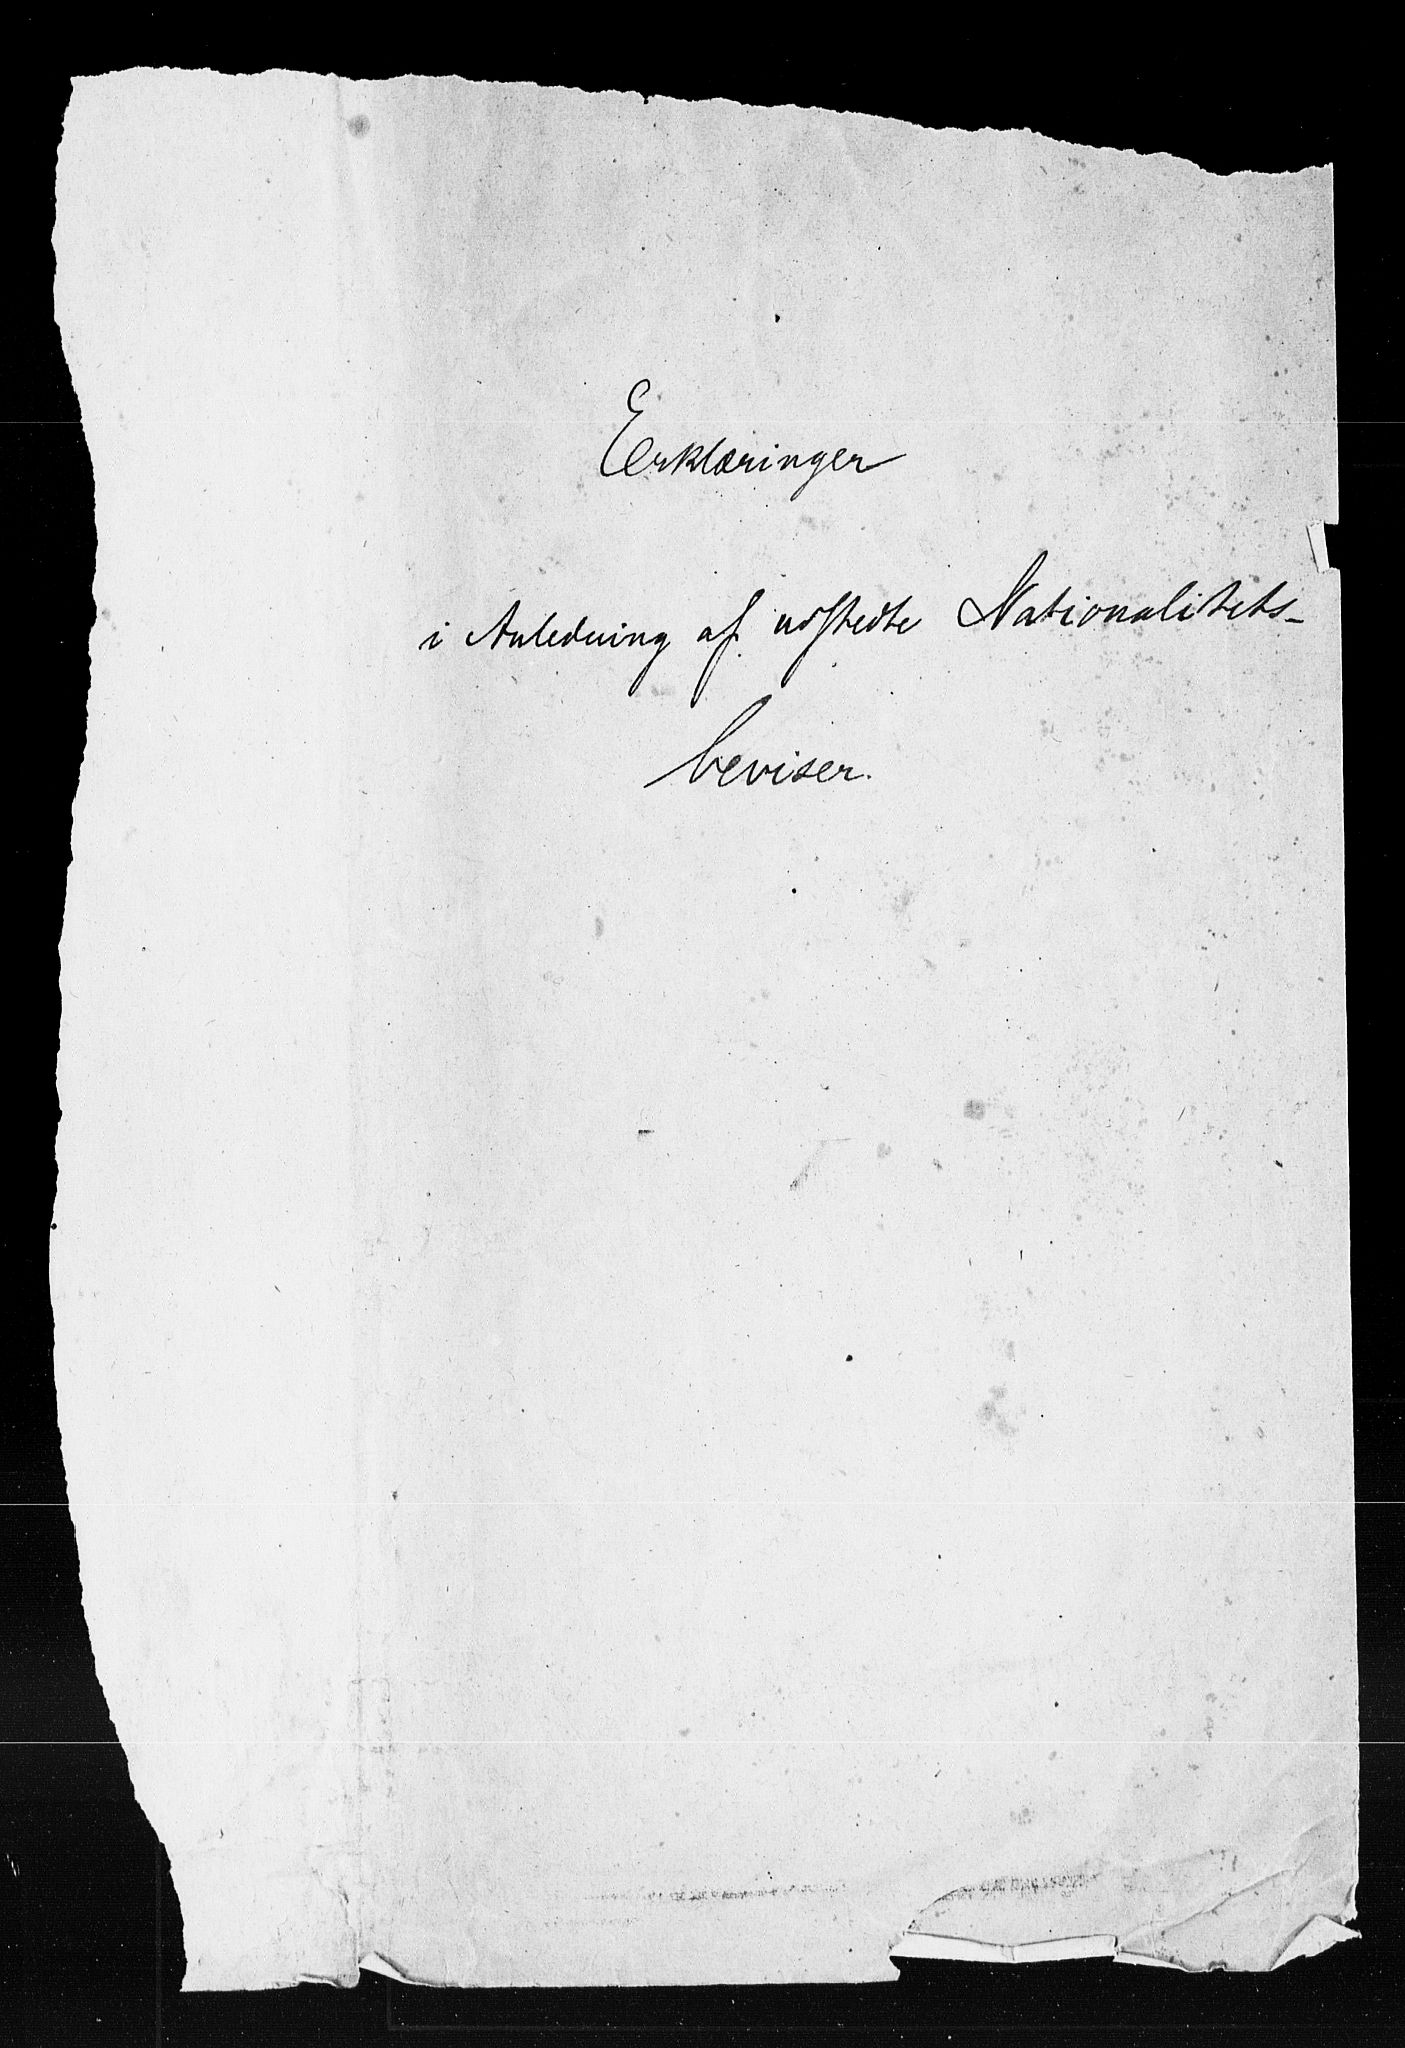 Erklæringer
i Anledning af udstedte Nationalitets-
beviser.